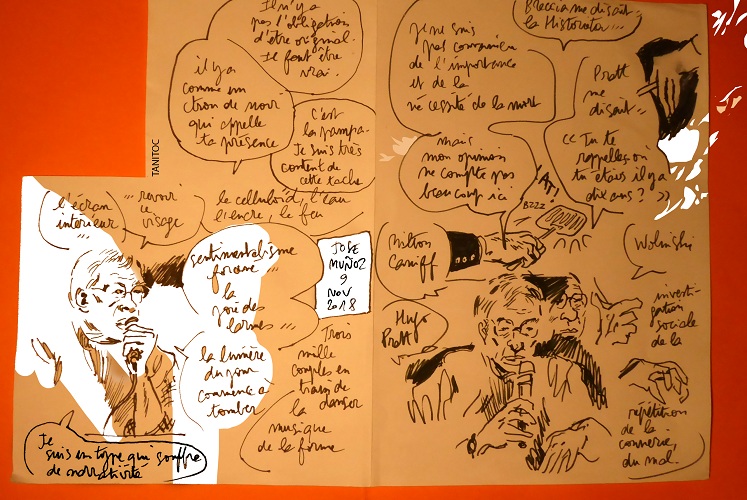 Il n'y a
pas l'obligation
d'être original.
Il faut être
vrai.
il y a
comme un
citron de noir
qui appelle
ta présence
c'est
la pampa.
Je suis très
content de
cette tache
TANITOC
l'écran
intérieur
revoir
ce
visage
le celluloïd, l'eau
l'encre, le feu
sentimentalisme
la
joie des
larmes...
JOSE
MUÑOZ
9
NOV
2018
la lumière
du jour
commence à
tomber
Trois
mille
couples en
train de
danser
la
musique
de la forme
Je
suis un type qui souffre
de narrativité
Breccia me disait:
la Historieta...
je ne suis
pas convaincu
de l'importance
et de la
nécessité de la mort
Pratt
me
disait:
<< Tu te
rappelles où
tu étais il y a
dix ans? >>
mais
mon opinion
ne compte pas
beaucoup ici
BZZZ
Milton
Caniff
Wolinski
Hugo
Pratt
investi-
gation
sociale
de la
répétition
de la
connerie,
du mal.